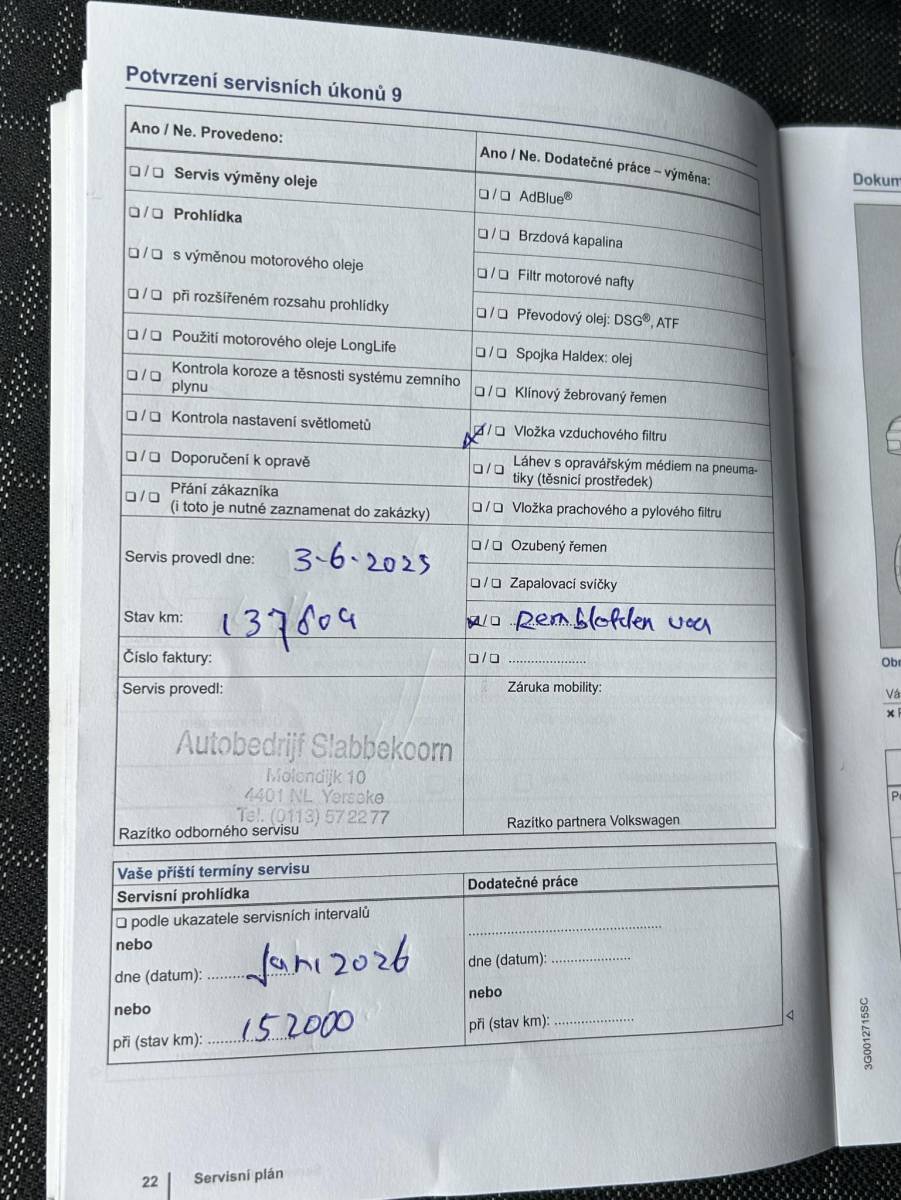 Potvrzení servisních úkonů 9
Ano / Ne. Provedeno:
❑ / ❑ Servis výměny oleje
❑ / ❑ Prohlídka
❑ / ❑ s výměnou motorového oleje
❑ / ❑ při rozšířeném rozsahu prohlídky
❑ / ❑ Použití motorového oleje LongLife
❑ / ❑ Kontrola koroze a těsnosti systému zemního
plynu
❑ / ❑ Kontrola nastavení světlometů
❑ / ❑ Doporučení k opravě
❑ / ❑ Přání zákazníka
(i toto je nutné zaznamenat do zakázky)
Servis provedl dne: 3-6-2025
Stav km: 137809
Číslo faktury:
Servis provedl:
Autobedrijf Slabbekoorn
Molendijk 10
4401 NL Yerseke
Tel. (0113) 57 22 77
Razítko odborného servisu
Ano / Ne. Dodatečné práce – výměna:
❑ / ❑ AdBlue®
❑ / ❑ Brzdová kapalina
❑ / ❑ Filtr motorové nafty
❑ / ❑ Převodový olej: DSG®, ATF
❑ / ❑ Spojka Haldex: olej
❑ / ❑ Klínový žebrovaný řemen
❑ / ❑ Vložka vzduchového filtru
❑ / ❑ Láhev s opravářským médiem na pneuma-
tiky (těsnicí prostředek)
❑ / ❑ Vložka prachového a pylového filtru
❑ / ❑ Ozubený řemen
❑ / ❑ Zapalovací svíčky
❑ / ❑ Remblokken voa
❑ / ❑ ......................
Záruka mobility:
Razítko partnera Volkswagen
Vaše příští termíny servisu
Servisní prohlídka
❑ podle ukazatele servisních intervalů
nebo
dne (datum): Juni 2026
nebo
při (stav km): 152000
Dodatečné práce
......................
dne (datum): ......................
nebo
při (stav km): ......................
22 Servisní plán
Dokum
Obr
Vá
3G0012715SC